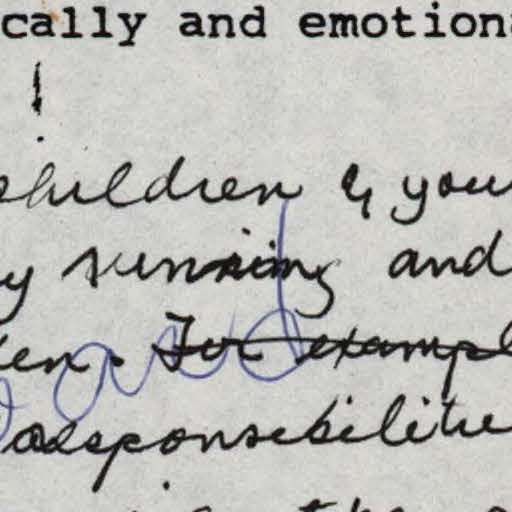 cally and emotion
children & you
y running and
en. For exampl
responsibilitie